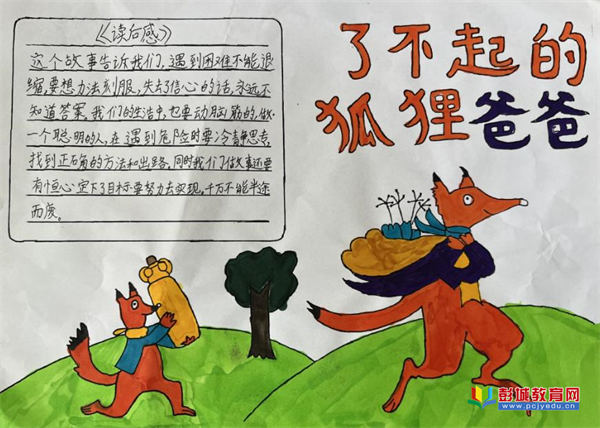 《读后感》
这个故事告诉我们,遇到困难不能退
缩,要想办法刻服,失去了信心的话,永远不
知道答案。我们的生活中,也要动脑筋的,做
一个聪明的人,在遇到危险时要冷静思考,
找到正确的方法和出路。同时我们做事还要
有恒心定下了目标要努力去实现,千万不能半途
而废。
了不起的
狐狸爸爸
彭城教育网
www.pcjyedu.cn